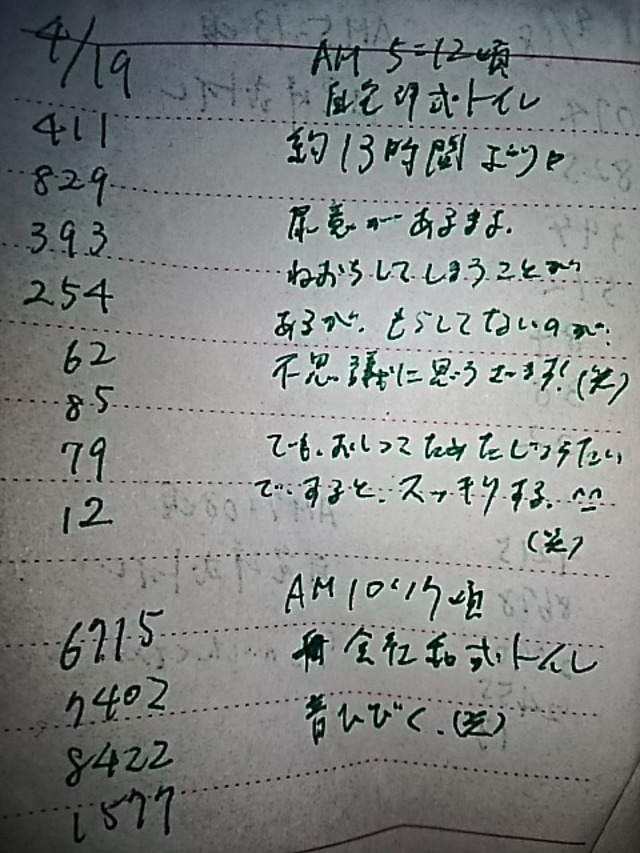 4/19
AM 5=12頃
自宅洋式トイレ
約13時間ぶり
411
829
393
254
62
85
79
12
尿意があるまま、
ねおちしてしまうことが
あるが、もらしてないのが、
不思議に思うさます!(笑)
でも、おしっこためた
ですると、スッキリする。^^
(笑)
AM 10:17頃
会社和式トイレ
音ひびく。(笑)
6715
7402
8422
1577